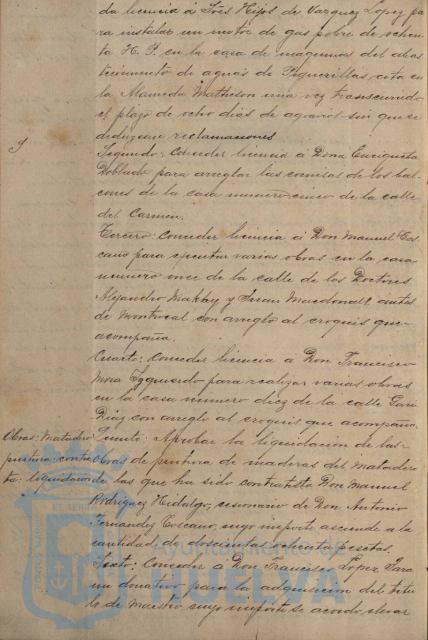 da licencia á Tres Hijos de Vazquez Lopez pa
ra instalar un motor de gas pobre de
H. P. en la casa de maquinas del abas
tecimiento de aguas de Peguerillas, sita en
la Alameda Matheson una vez transcurrido
el plazo de ocho dias de agravios sin que se
dedujeran reclamaciones
Segundo: Conceder licencia á Dona Enriqueta
Doblado para arreglar las cornisas de los bal
cones de la casa numero cinco de la calle
del Carmen.
Tercero: Conceder licencia á Don Manuel
para ejecutar varias obras en la casa
numero once de la calle de los Doctores
Alejandro Mackay y Juan Macdonall antes
de Montrocal con arreglo al croquis que
acompaña.
Cuarto: Conceder licencia a Don Francisco
Mora Izquierdo para realizar varias obras
en la casa numero diez de la calle
Diaz con arreglo al croquis que acompaña.
Obras: Matadero
pintura: contra
ta: liquidacion
Quinto: Aprobar la liquidacion de las
obras de pintura de maderas del matadero
de las que ha sido contratista Don Manuel
Rodriguez Hidalgo, cesionario de Don Antonio
Fernandez Toscano, cuyo importe asciende a la
cantidad de doscientas ochenta pesetas.
Sexto: Conceder a Don Francisco Lopez Jara
un donativo para la adquisicion del titu
lo de Maestro cuyo importe se acordó elevar
Ayuntamiento de
HUELVA